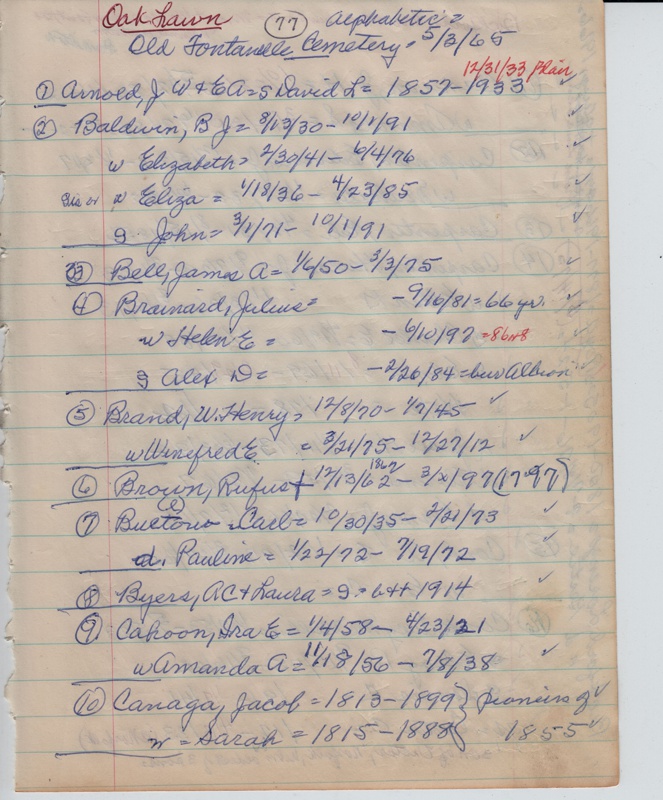 Oak Lawn 77 alphabetic =
Old Fontanelle Cemetery = 5/3/65
12/31/33 Blair
① Arnold, J W + E A = s David L = 1857-1933 ✓
② Baldwin, B J = 8/13/30 - 10/1/91 ✓
w Elizabeth = 2/30/41 - 6/4/76 ✓
Sis or w Eliza = 1/18/36 - 4/23/85 ✓
s John = 3/1/71 - 10/1/91 ✓
③ Bell, James A = 1/6/50 - 3/3/75
④ Brainard, Julius = - 9/16/81 = 66 yr. ✓
w Helen E = - 6/10/97 = 86
s Alex D = - 2/26/84 = bur Albion
⑤ Brand, W. Henry = 12/8/70 - 1/7/45 ✓
w Winefred E = 3/21/75 - 12/27/12 ✓
1862
⑥ Brown, Rufus + 12/13/62 - 3/x/97 (1797)
⑦ Burton = Carl = 10/30/35 - 2/21/73 ✓
d. Pauline = 1/22/72 - 7/19/72 ✓
⑧ Byers, AC + Laura = s = b + + 1914 ✓
⑨ Cahoon, Ira E = 1/4/58 - 4/23/21
w Amanda A = 11/18/56 - 7/8/38 ✓
⑩ Canaga, Jacob = 1813-1899 } pioneers of ✓
w = Sarah = 1815-1888 } 1855 ✓